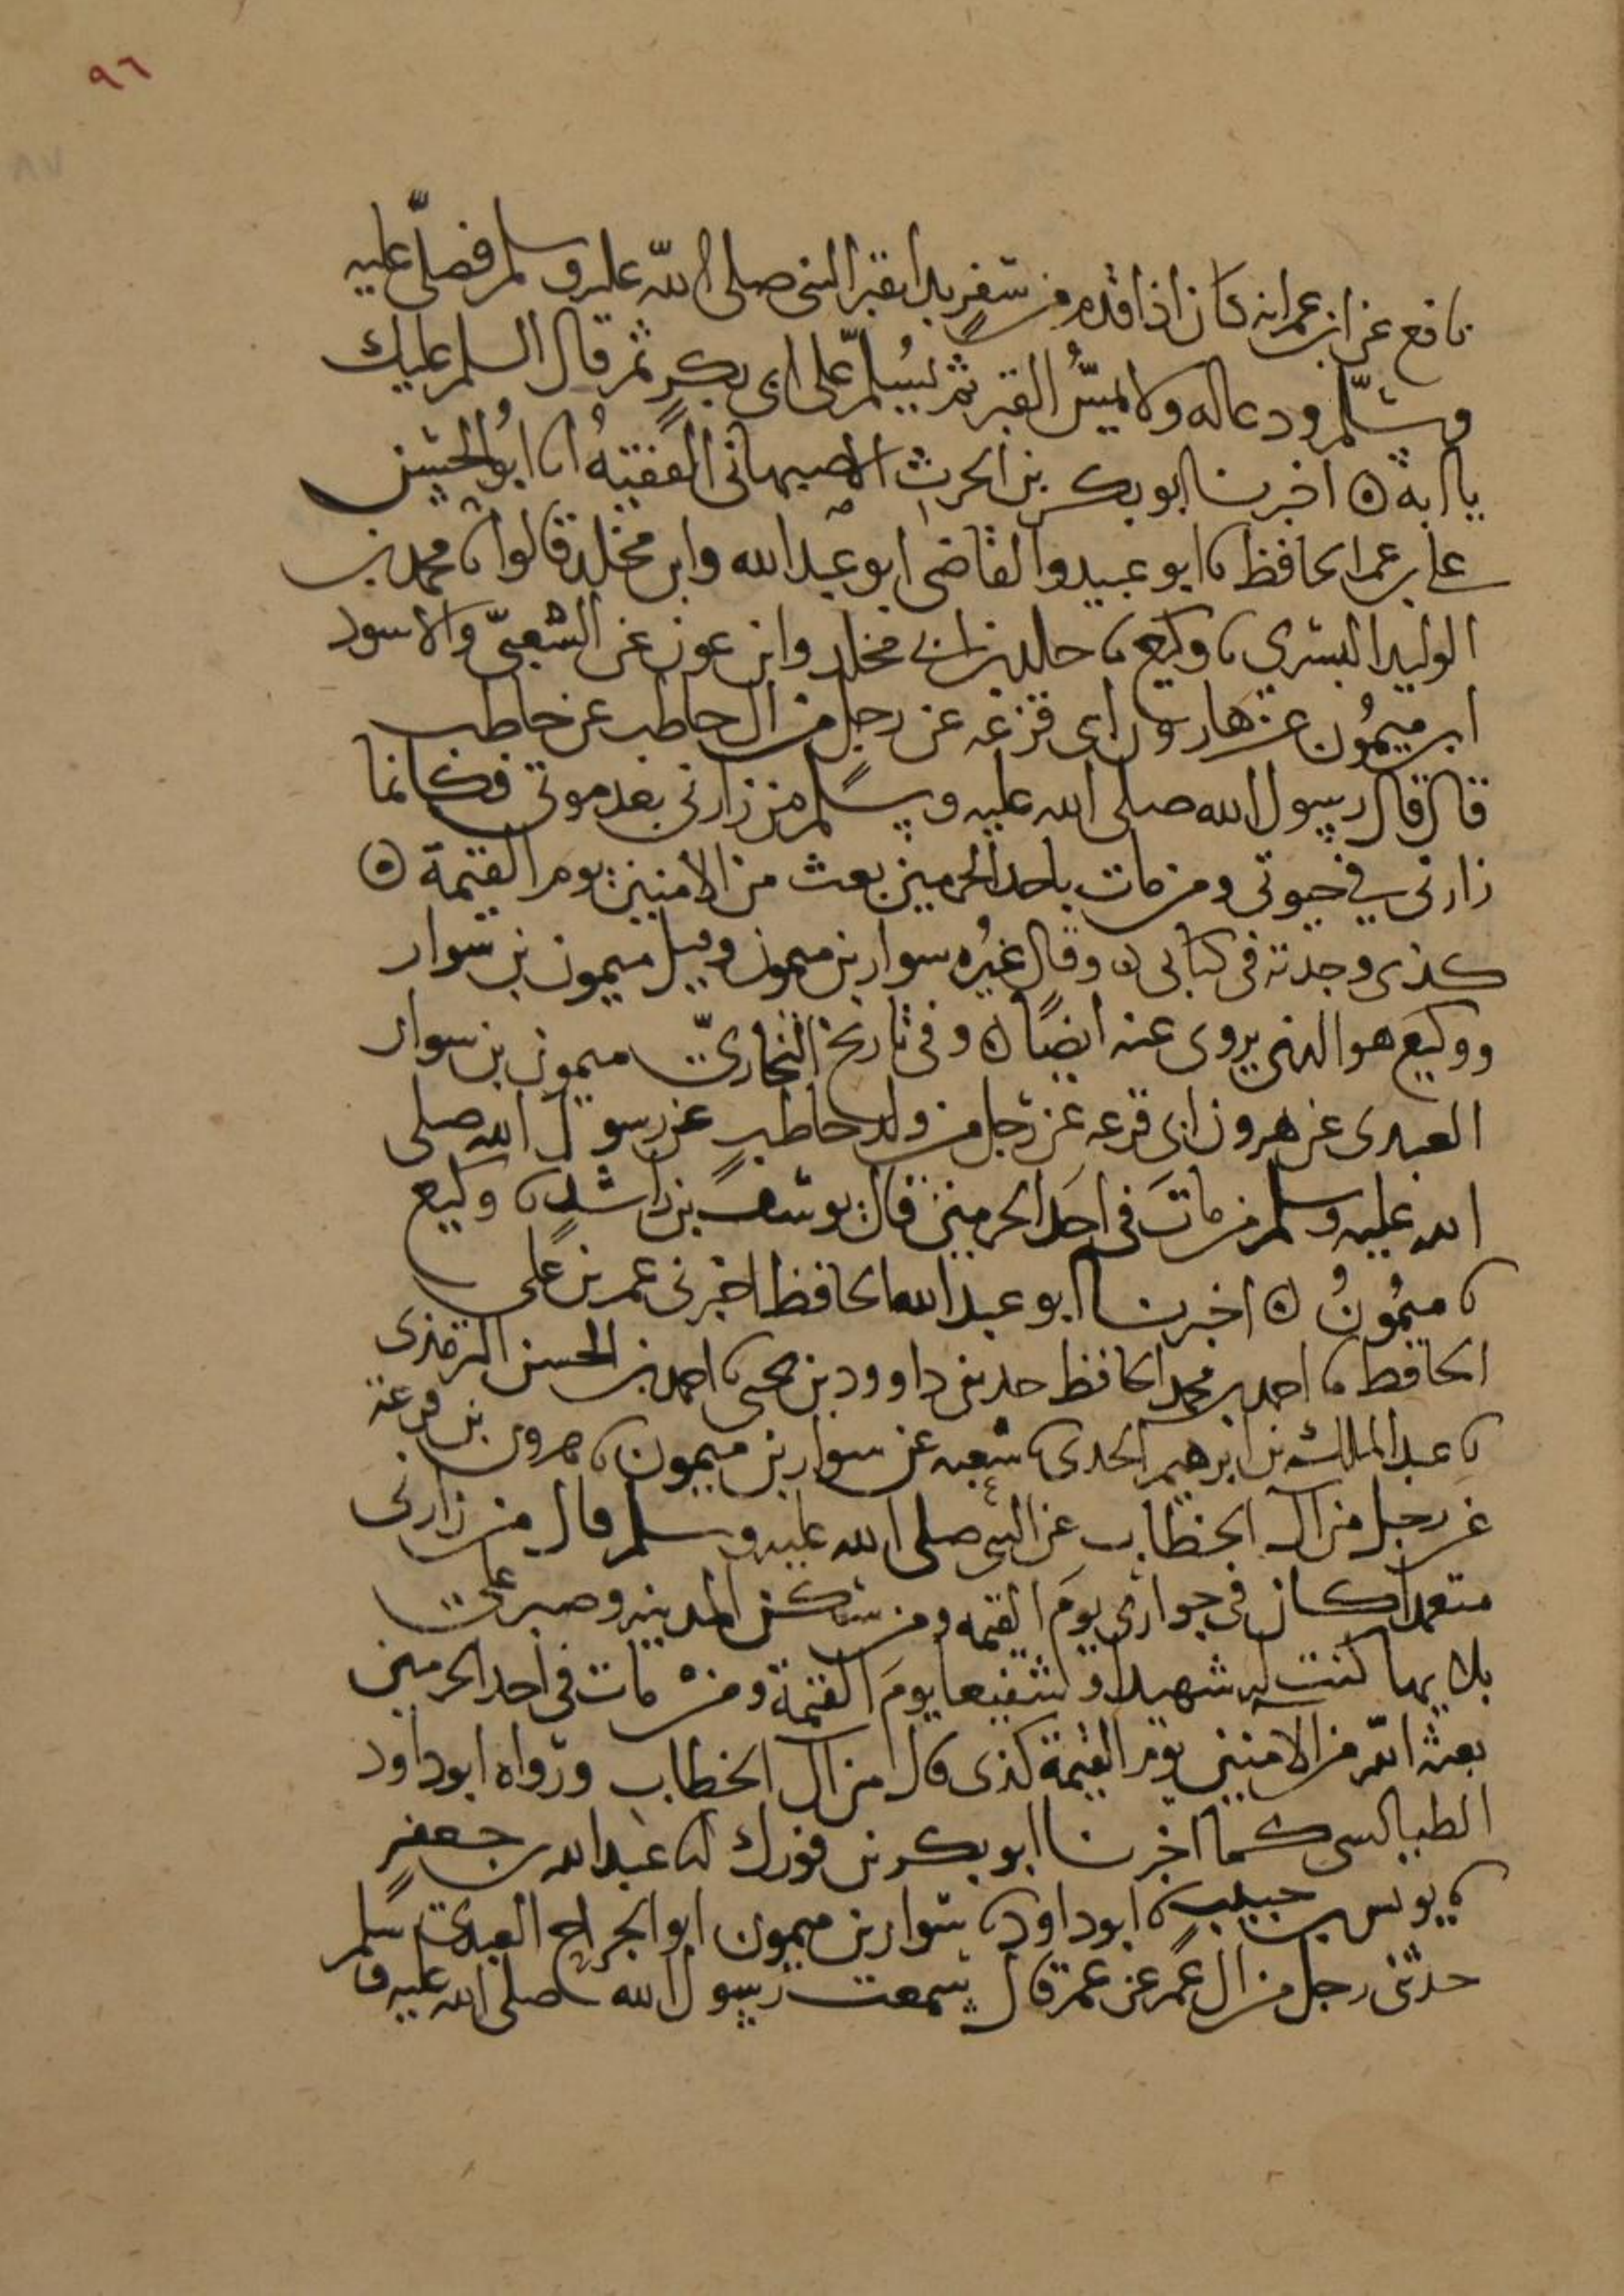 ٩٦
٨٧
نافع عن ابن عمر انه كان اذا قدم من سفر بدا بقبر النبي صلى الله عليه وسلم فصلى عليه
وسلم ودعا له ولا يمس القبر ثم يسلم على ابي بكر ثم قال السلم عليك
يا ابه ه اخبرنا ابو بكر بن الحرث الاصبهاني الفقيه انا ابو الحسن
علي بن عمر الحافظ نا ابو عبيد والقاضي ابو عبد الله وابن مخلد قالوا نا محمد بن
الوليد البسري نا وكيع نا خالد بن ابي مخلد وابن عون عن الشعبي والاسود
ابن ميمون عن هارون ابي قزعه عن رجل من ال حاطب عن حاطب
قال قال رسول الله صلى الله عليه وسلم من زارني بعد موتي فكانما
زارني في حيوتي ومن مات باحد الحرمين بعث من الامنين يوم القيمة ه
كذى وجدته في كتابي ه وقال غيره سوار بن ميمون وقيل ميمون بن سوار
ووكيع هو الذي يروي عنه ايضا ه وفي تاريخ البخاري ميمون بن سوار
العبدي عن هرون ابي قزعه عن رجل من ولد حاطب عن رسول الله صلى
الله عليه وسلم من مات في احد الحرمين قال يوسف بن راشد نا وكيع
نا ميمون ه اخبرنا ابو عبد الله الحافظ اخبرني عمر بن علي
الحافظ نا احمد بن محمد الحافظ حدثني داوود بن يحيى نا احمد بن الحسن الترمذي
نا عبد الملك بن ابرهيم الجدي نا شعبه عن سوار بن ميمون نا هرون بن قزعة
عن رجل من ال الخطاب عن النبي صلى الله عليه وسلم قال من زارني
متعمدا كان في جواري يوم القيمه ومن سكن المدينه وصبر على
بلايها كنت له شهيدا و شفيعا يوم القيمة ومن مات في احد الحرمين
بعثه الله من الامنين يوم القيمة كذى قال من ال الخطاب ورواه ابو داود
الطيالسي كما اخبرنا ابو بكر بن فورك انا عبد الله بن جعفر
نا يونس بن حبيب نا ابو داود نا سوار بن ميمون ابو الجراح العبدي
حدثني رجل من ال عمر عن عمر قال سمعت رسول الله صلى الله عليه وسلم